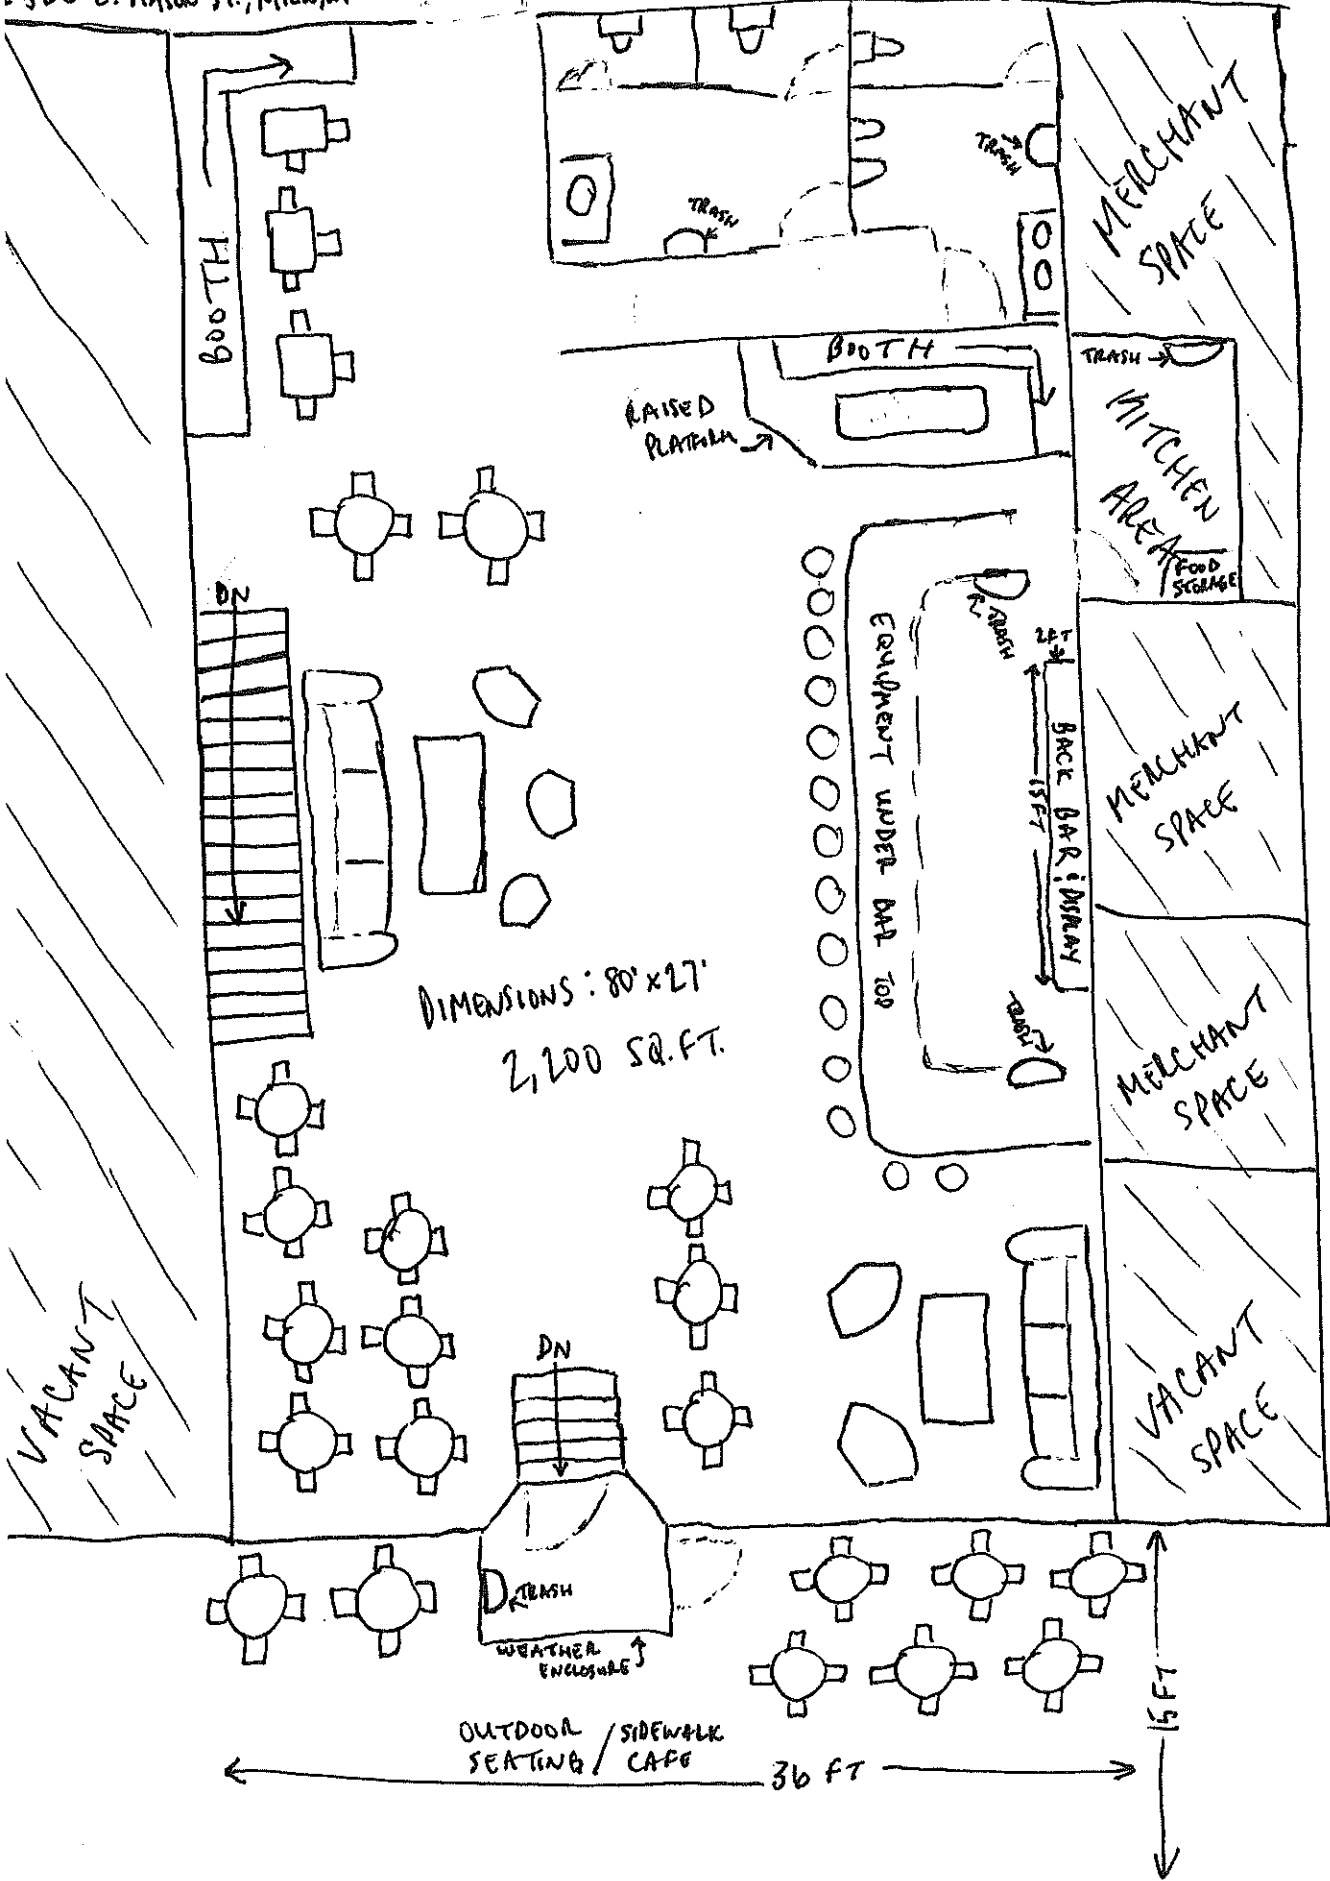 MASON ST.,
TRASH
TRASH
MERCHANT
SPACE
BOOTH
BOOTH
TRASH
RAISED
PLATFORM
KITCHEN
AREA
FOOD
STORAGE
DN
TRASH
2FT
EQUIPMENT UNDER BAR TOP
15FT
BACK BAR & DISPLAY
MERCHANT
SPACE
DIMENSIONS: 80'x27'
2,200 SQ.FT.
TRASH
MERCHANT
SPACE
VACANT
SPACE
DN
VACANT
SPACE
TRASH
WEATHER
ENCLOSURE
OUTDOOR / SIDEWALK
SEATING / CAFE
36 FT
15FT